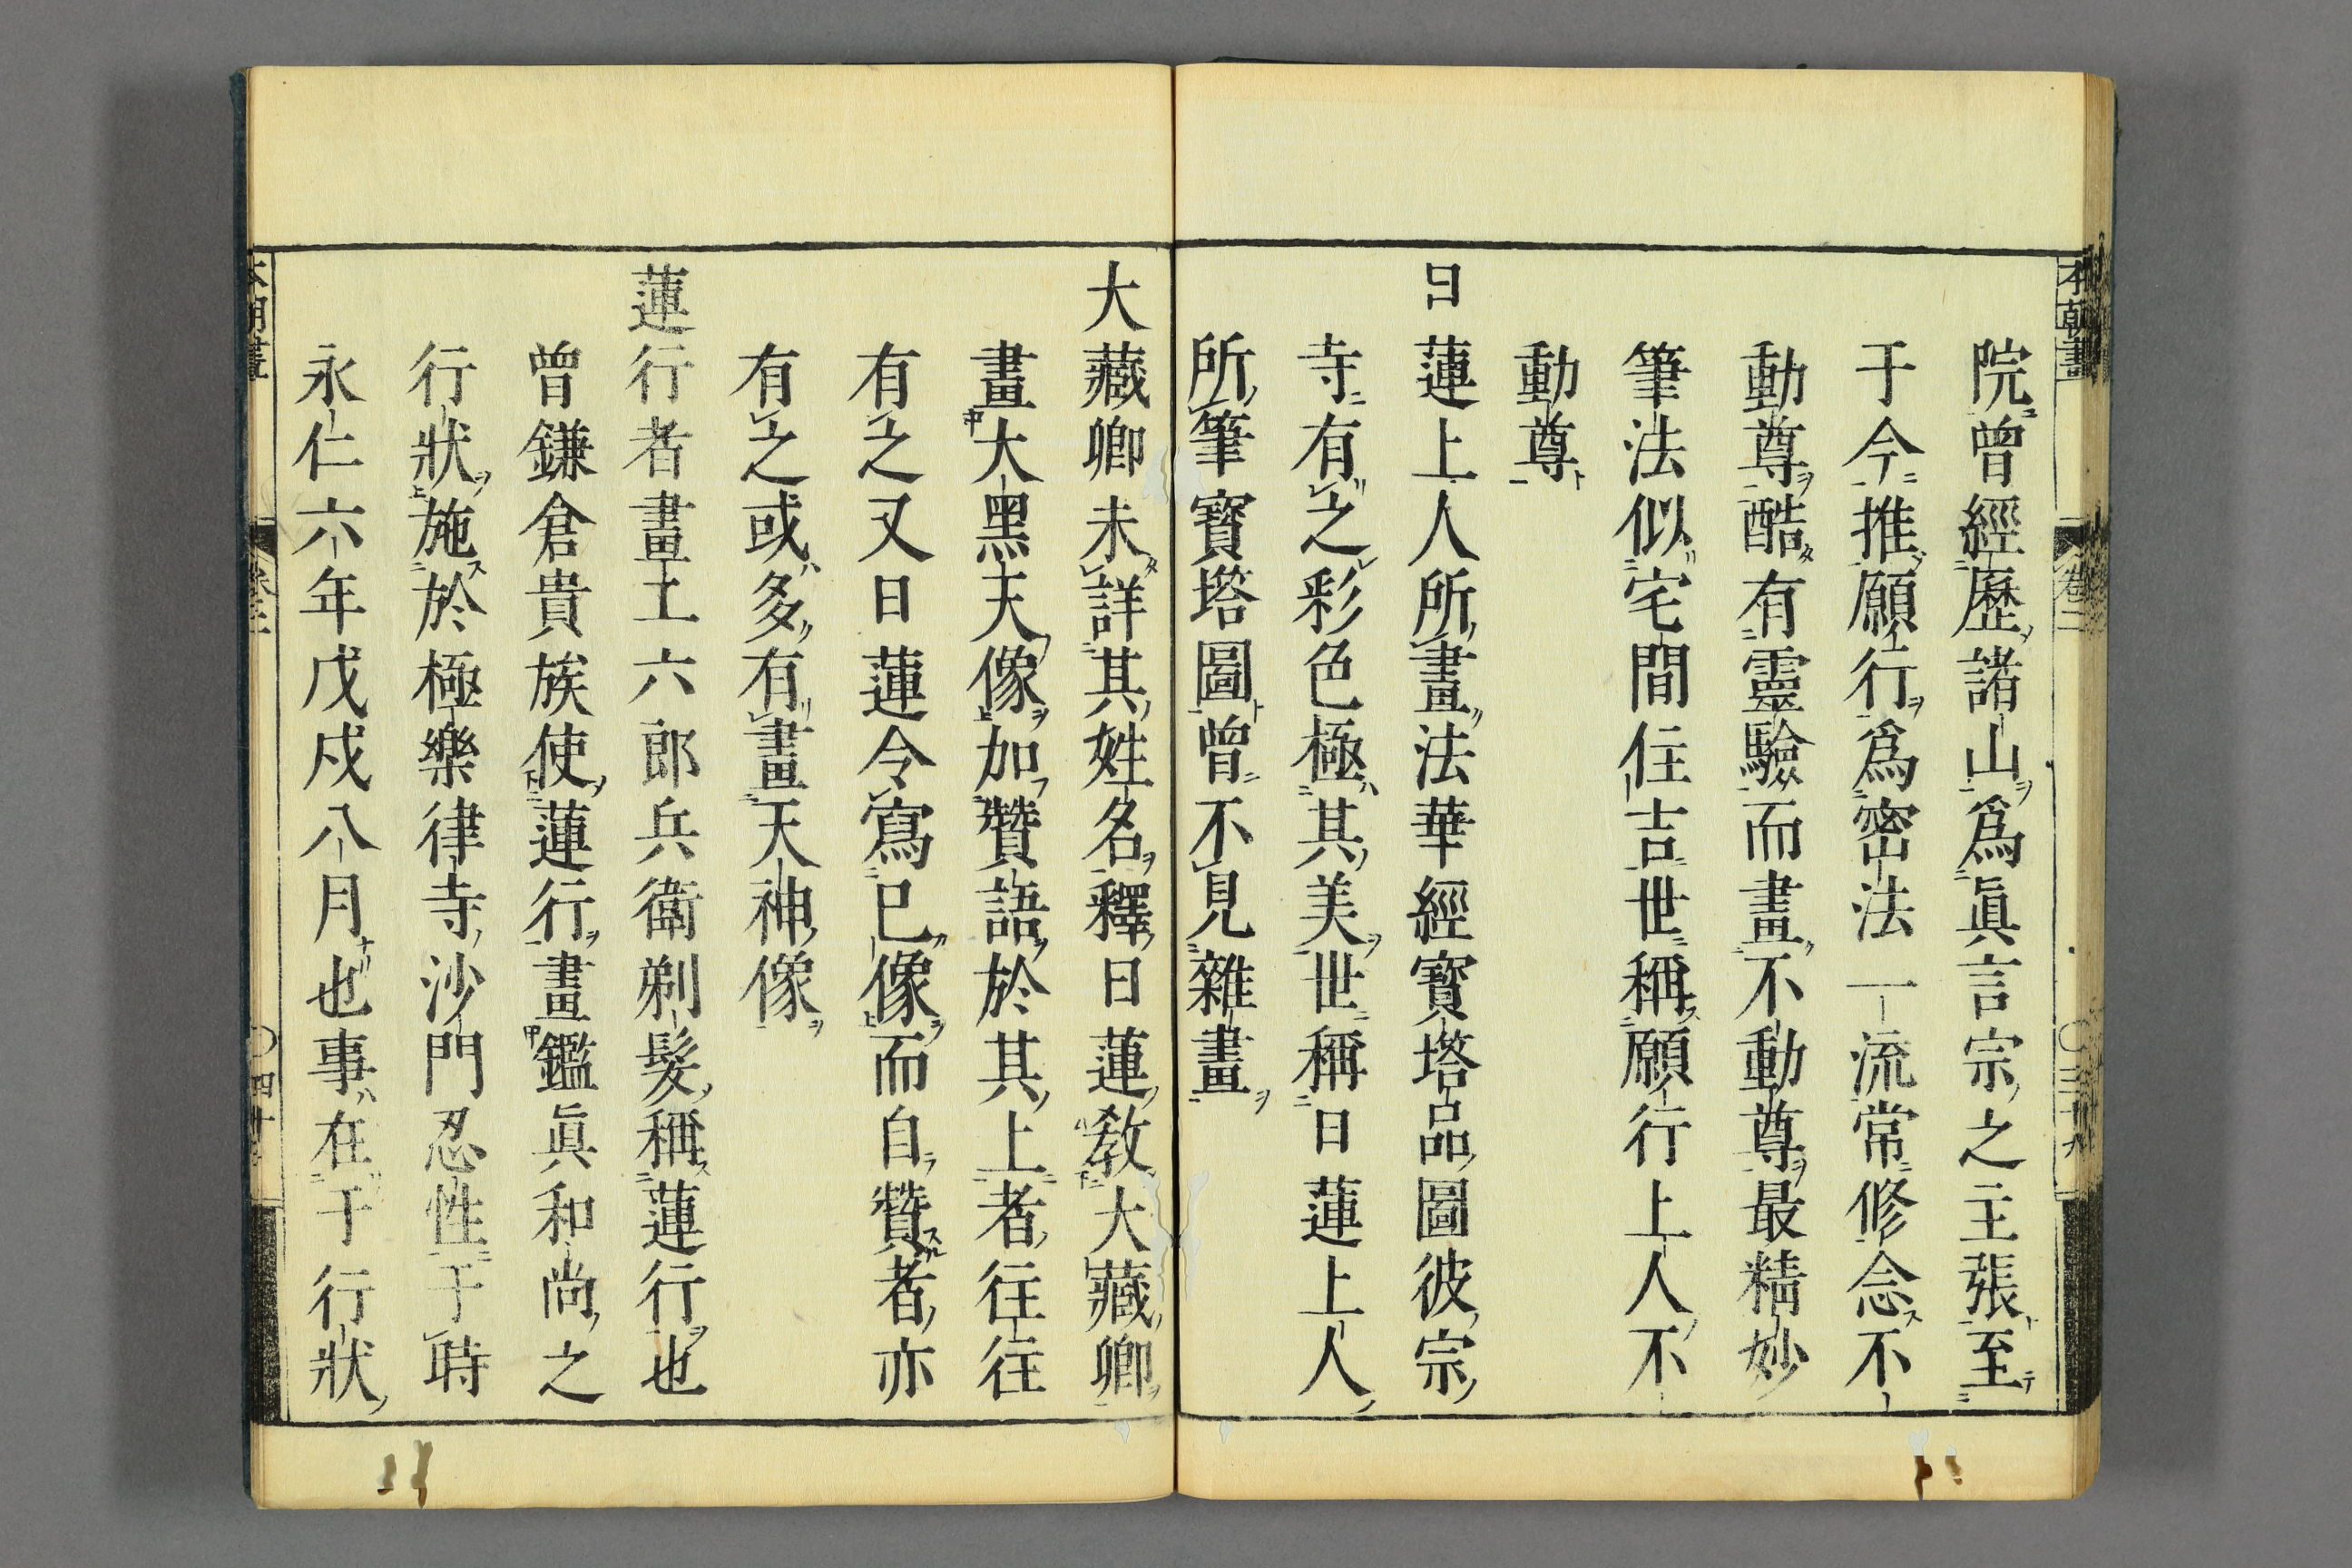 院曾經歷諸山爲眞言宗之主張至
于今推願行爲密法一流常修念不
動尊酷有靈驗而畫不動尊最精妙
筆法似宅間住吉世稱願行上人不
動尊
日蓮上人所畫法華經寶塔品圖彼宗
寺有之彩色極其美世稱日蓮上人
所筆寶塔圖曾不見雜畫
大藏卿未詳其姓名釋日蓮敎大藏卿
畫大黑天像加贊語於其上者往往
有之又日蓮令寫已像而自贊者亦
有之或多有畫天神像
蓮行者畫工六郎兵衞剃髮稱蓮行也
曾鎌倉貴族使蓮行畫鑑眞和尚之
行狀施於極樂律寺沙門忍性于時
永仁六年戊戌八月也事在于行狀